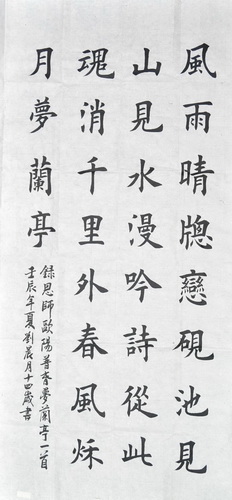 風雨晴牕戀硯池見
山見水漫吟詩從此
魂消千里外春風秋
月夢蘭亭
錄恩師歐陽普夢蘭亭一首
壬辰年夏劉晨月十四歲書